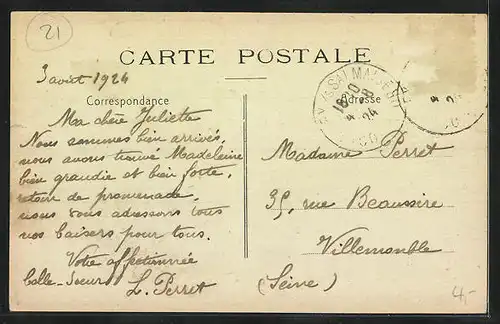 21
CARTE POSTALE
3 aout 1924
Correspondance
Adresse
Ma chère Juliette
Nous sommes bien arrivés,
nous avons trouvé Madeleine
bien grandie et bien forte,
de promenade,
nous vous adressons tous
nos baisers pour tous.
Votre affetionnée
belle-soeur L. Perret
Madame Perret
35, rue Beaussire
Villemomble
(Seine)
18 20
8
24
24
4.-